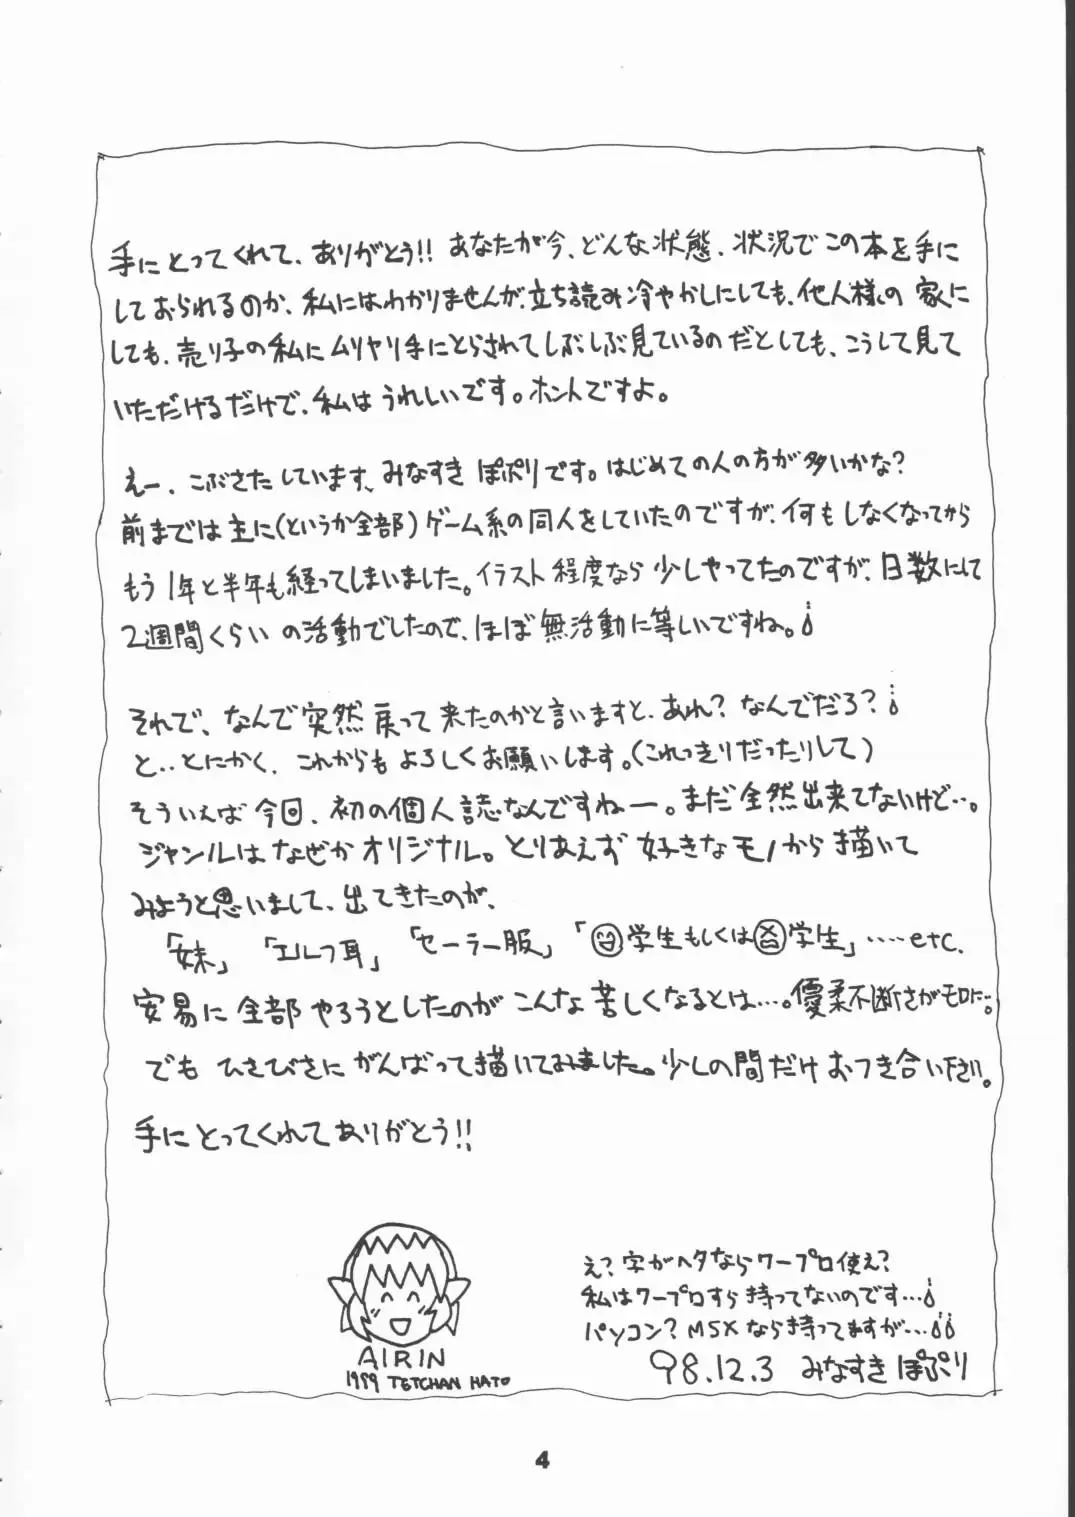 手にとってくれて、ありがとう!! あなたが今、どんな状態、状況でこの本を手に
しておられるのか、私にはわかりませんが、立ち読み冷やかしにしても、他人様の家に
しても、売り子の私にムリヤリ手にとらされてしぶしぶ見ているのだとしても、こうして見て
いただけるだけで、私はうれしいです。ホントですよ。
えー、こぶさたしています、みなすきぽぷりです。はじめての人の方が多いかな?
前までは主に(というか全部)ゲーム系の同人をしていたのですが、何もしなくなってから
もう1年と半年も経ってしまいました。イラスト程度なら少しやってたのですが、日数にして
2週間くらいの活動でしたので、ほぼ無活動に等しいですね。
それで、なんで突然戻って来たのかと言いますと、あれ?なんでだろ?
と‥とにかく、これからもよろしくお願いします。(これっきりだったりして)
そういえば今回、初の個人誌なんですねー。まだ全然出来てないけど…。
ジャンルはなぜかオリジナル。とりあえず好きなモノから描いて
みようと思いまして、出てきたのが、
「妹」「エルフ耳」「セーラー服」「学生もしくは学生」‥‥etc.
安易に全部やろうとしたのがこんな苦しくなるとは…。優柔不断さがモロに…。
でもひさびさにがんばって描いてみました。少しの間だけおつき合い下さい。
手にとってくれてありがとう!!
AIRIN
1999 TETCHAN HATO
え?字がヘタならワープロ使え?
私はワープロすら持ってないのです…
パソコン?MSXなら持ってますが…
98.12.3 みなすきぽぷり
4